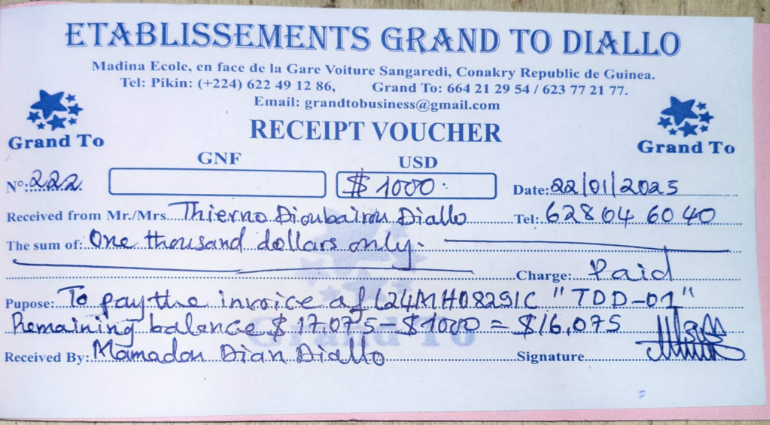 ETABLISSEMENTS GRAND TO DIALLO
Madina Ecole, en face de la Gare Voiture Sangaredi, Conakry Republic de Guinea.
Tel: Pikin: (+224) 622 49 12 86, Grand To: 664 21 29 54 / 623 77 21 77.
Email: grandtobusiness@gmail.com
Grand To
RECEIPT VOUCHER
Grand To
GNF USD
N°: 222 $ 1000 Date: 22/01/2025
Received from Mr./Mrs. Thierno Dioubairou Diallo Tel: 628 04 60 40
The sum of: One thousand dollars only.
Charge: Paid
Pupose: To pay the invoice of L24MH0829IC "TDD-01"
Remaining balance $ 17,075 - $1000 = $16,075
Received By: Mamadou Dian Diallo Signature